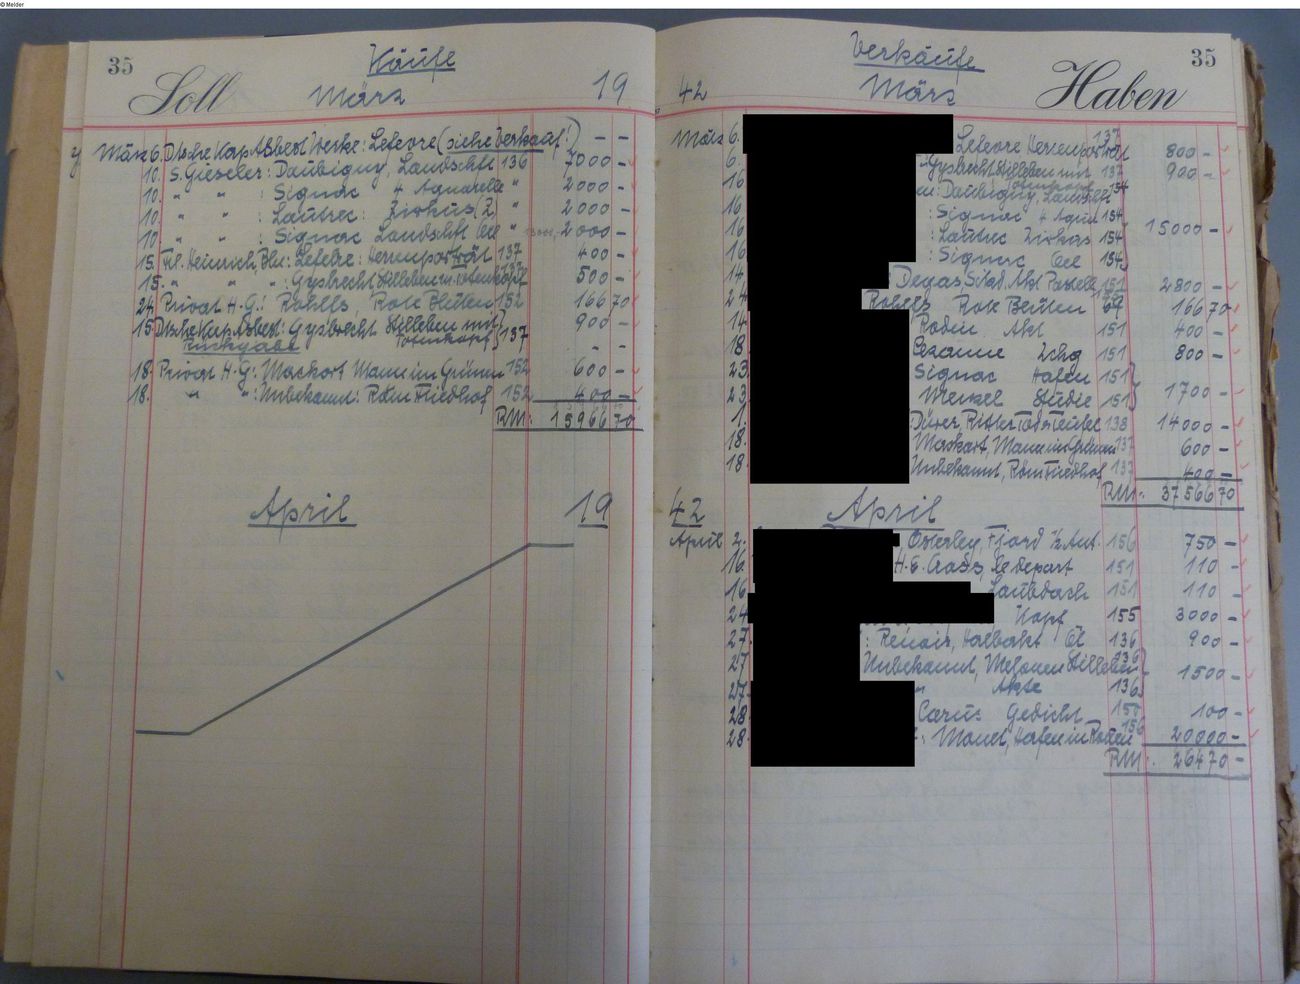 © Melder
35
Käufe
Soll
März
19
März 6. Dtsche Kap Asbest Werke: Lefevre (siehe Verkauf!) — —
10. S. Gieseler: Daubigny, Landschft 136 7000 —
10. " " : Signac 4 Aquarelle " 2000 —
10. " " : Lautrec: Zirkus (2) " 2000 —
10. " " : Signac Landschft Oel " 2000 —
15. Frl. Heinrich Bln: Lefebre: Herrenporträt 137 400 —
15. " " " : Gysbrecht Stilleben m. Totenkopf 137 500 —
24. Privat H-G: Rohlfs, Rote Blüten 152 166 70
15. Dtsche Kap. Asbest: Gysbrecht Stilleben mit Totenkopf 137 900 —
Rückgabe — —
18. Privat H-G: Mackart Mann im Grünen 152 600 —
18. " " " : Unbekannt: Röm Friedhof 152 400 —
RM: 15966 70
April
19
Verkäufe
35
42
März
Haben
März 6. Lefevre Herrenporträt 137 800 —
6. Gysbrecht Stilleben mit Totenkopf 137 900 —
16 : Daubigny, Landschft 154
16 : Signac 4 Aqua 154
16 : Lautrec Zirkus 154 15000 —
16 : Signac Oel 154
14 Degas Sitzd. Akt Pastell 151 2800 —
24 Rohlfs Rote Blüten 166 70
14 Rodin Akt 151 400 —
18 Cezanne Zchg 151 800 —
23 Signac Hafen 151
23 Menzel Studie 151 1700 —
1. Dürer, Ritter Tod u Teufel 138 14000 —
18. Mackart, Mann im Grünen 137 600 —
18 Unbekannt, Röm Friedhof 137 400 —
RM: 37566 70
42
April
April 2. Osterley, Fjord ½ Ant. 156 750 —
16 le depart 151 110 —
16 Laubdach 151 110 —
24 Kopf 155 3000 —
27 : Renoir, Halbakt Öl 136 900 —
27 Unbekannt, Melonen Stilleben 136 1500 —
27. " Akte 136
28 Carus Gedicht 150 100 —
28. : Monet, Hafen in Rouen 156 20000 —
RM: 26470 —